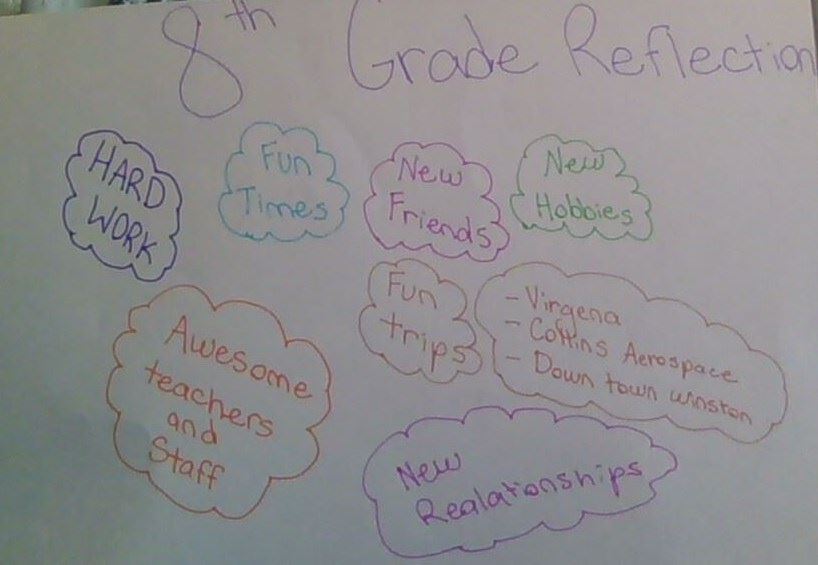 8th Grade Reflection
HARD
WORK
Fun
Times
New
Friends
New
Hobbies
Fun
trips
- Virgena
- Cottins Aerospace
- Down town winston
Awesome
teachers
and
Staff
New
Realationships